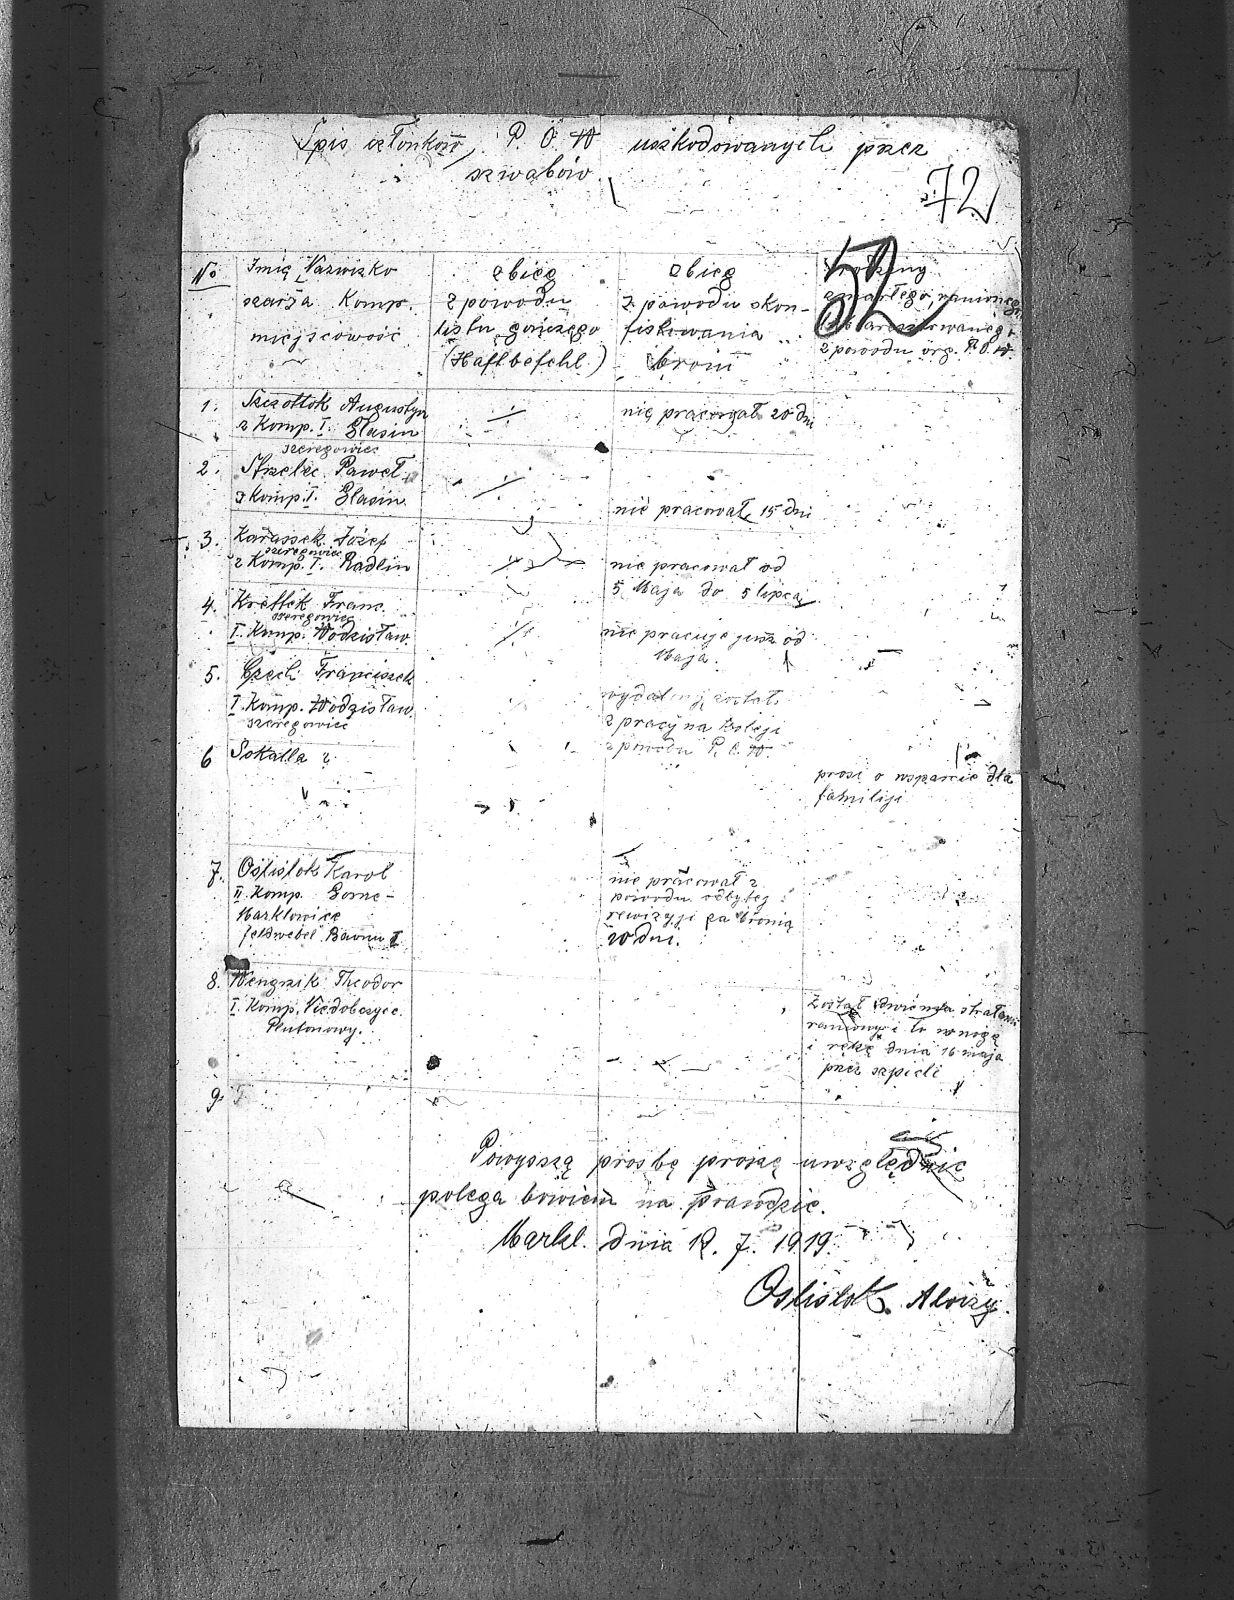 Spis członków P. O. W uszkodowanych przez
szwabów.
72
52
No
Imię Nazwisko
szarża Komp.
miejscowość
zbieg
z powodu
listu gończego
(Haftbefehl)
zbieg
z powodu skon-
fiskowania
broni
zmarłego, ranionego
aresztowanego
z powodu org. P.O.W.
1. Szczottok Augustyn
z Komp. I. Glasin
szeregowiec
nie pracował 20 dni
2. Strzelec Paweł
z Komp. I. Glasin
nie pracował 15 dni
3. Karassek Józef
szeregowiec
z Komp. I. Radlin
nie pracował od
5 Maja do 5 lipca
4. Krettek Franc.
szeregowiec
I. Komp. Wodzisław
nie pracuje już od
Maja.
5. Czech Franciszek
I. Komp. Wodzisław
szeregowiec
wydalony został
z pracy na koleji
z powodu P. O. W.
6 Sokalla z
prosi o wsparcie dla
familiji
7. Oslislok Karol
II. Komp. Gorne-
Marklowice
feldwebel Baonu I
nie pracował z
powodu odbytej
rewizyji za bronią
20 dni.
8. Wengrzik Theodor
I. Komp. Niedobczyce.
Plutonowy.
Został dwiema strałami
raniony i to w nogę
i rękę dnia 16 maja
przez szpicli
9.
Powyszą prośbę proszę uwzględnić
polega bowiem na prawdzie.
Markl. dnia 12. 7. 1919.
Oslislok Aloizy.